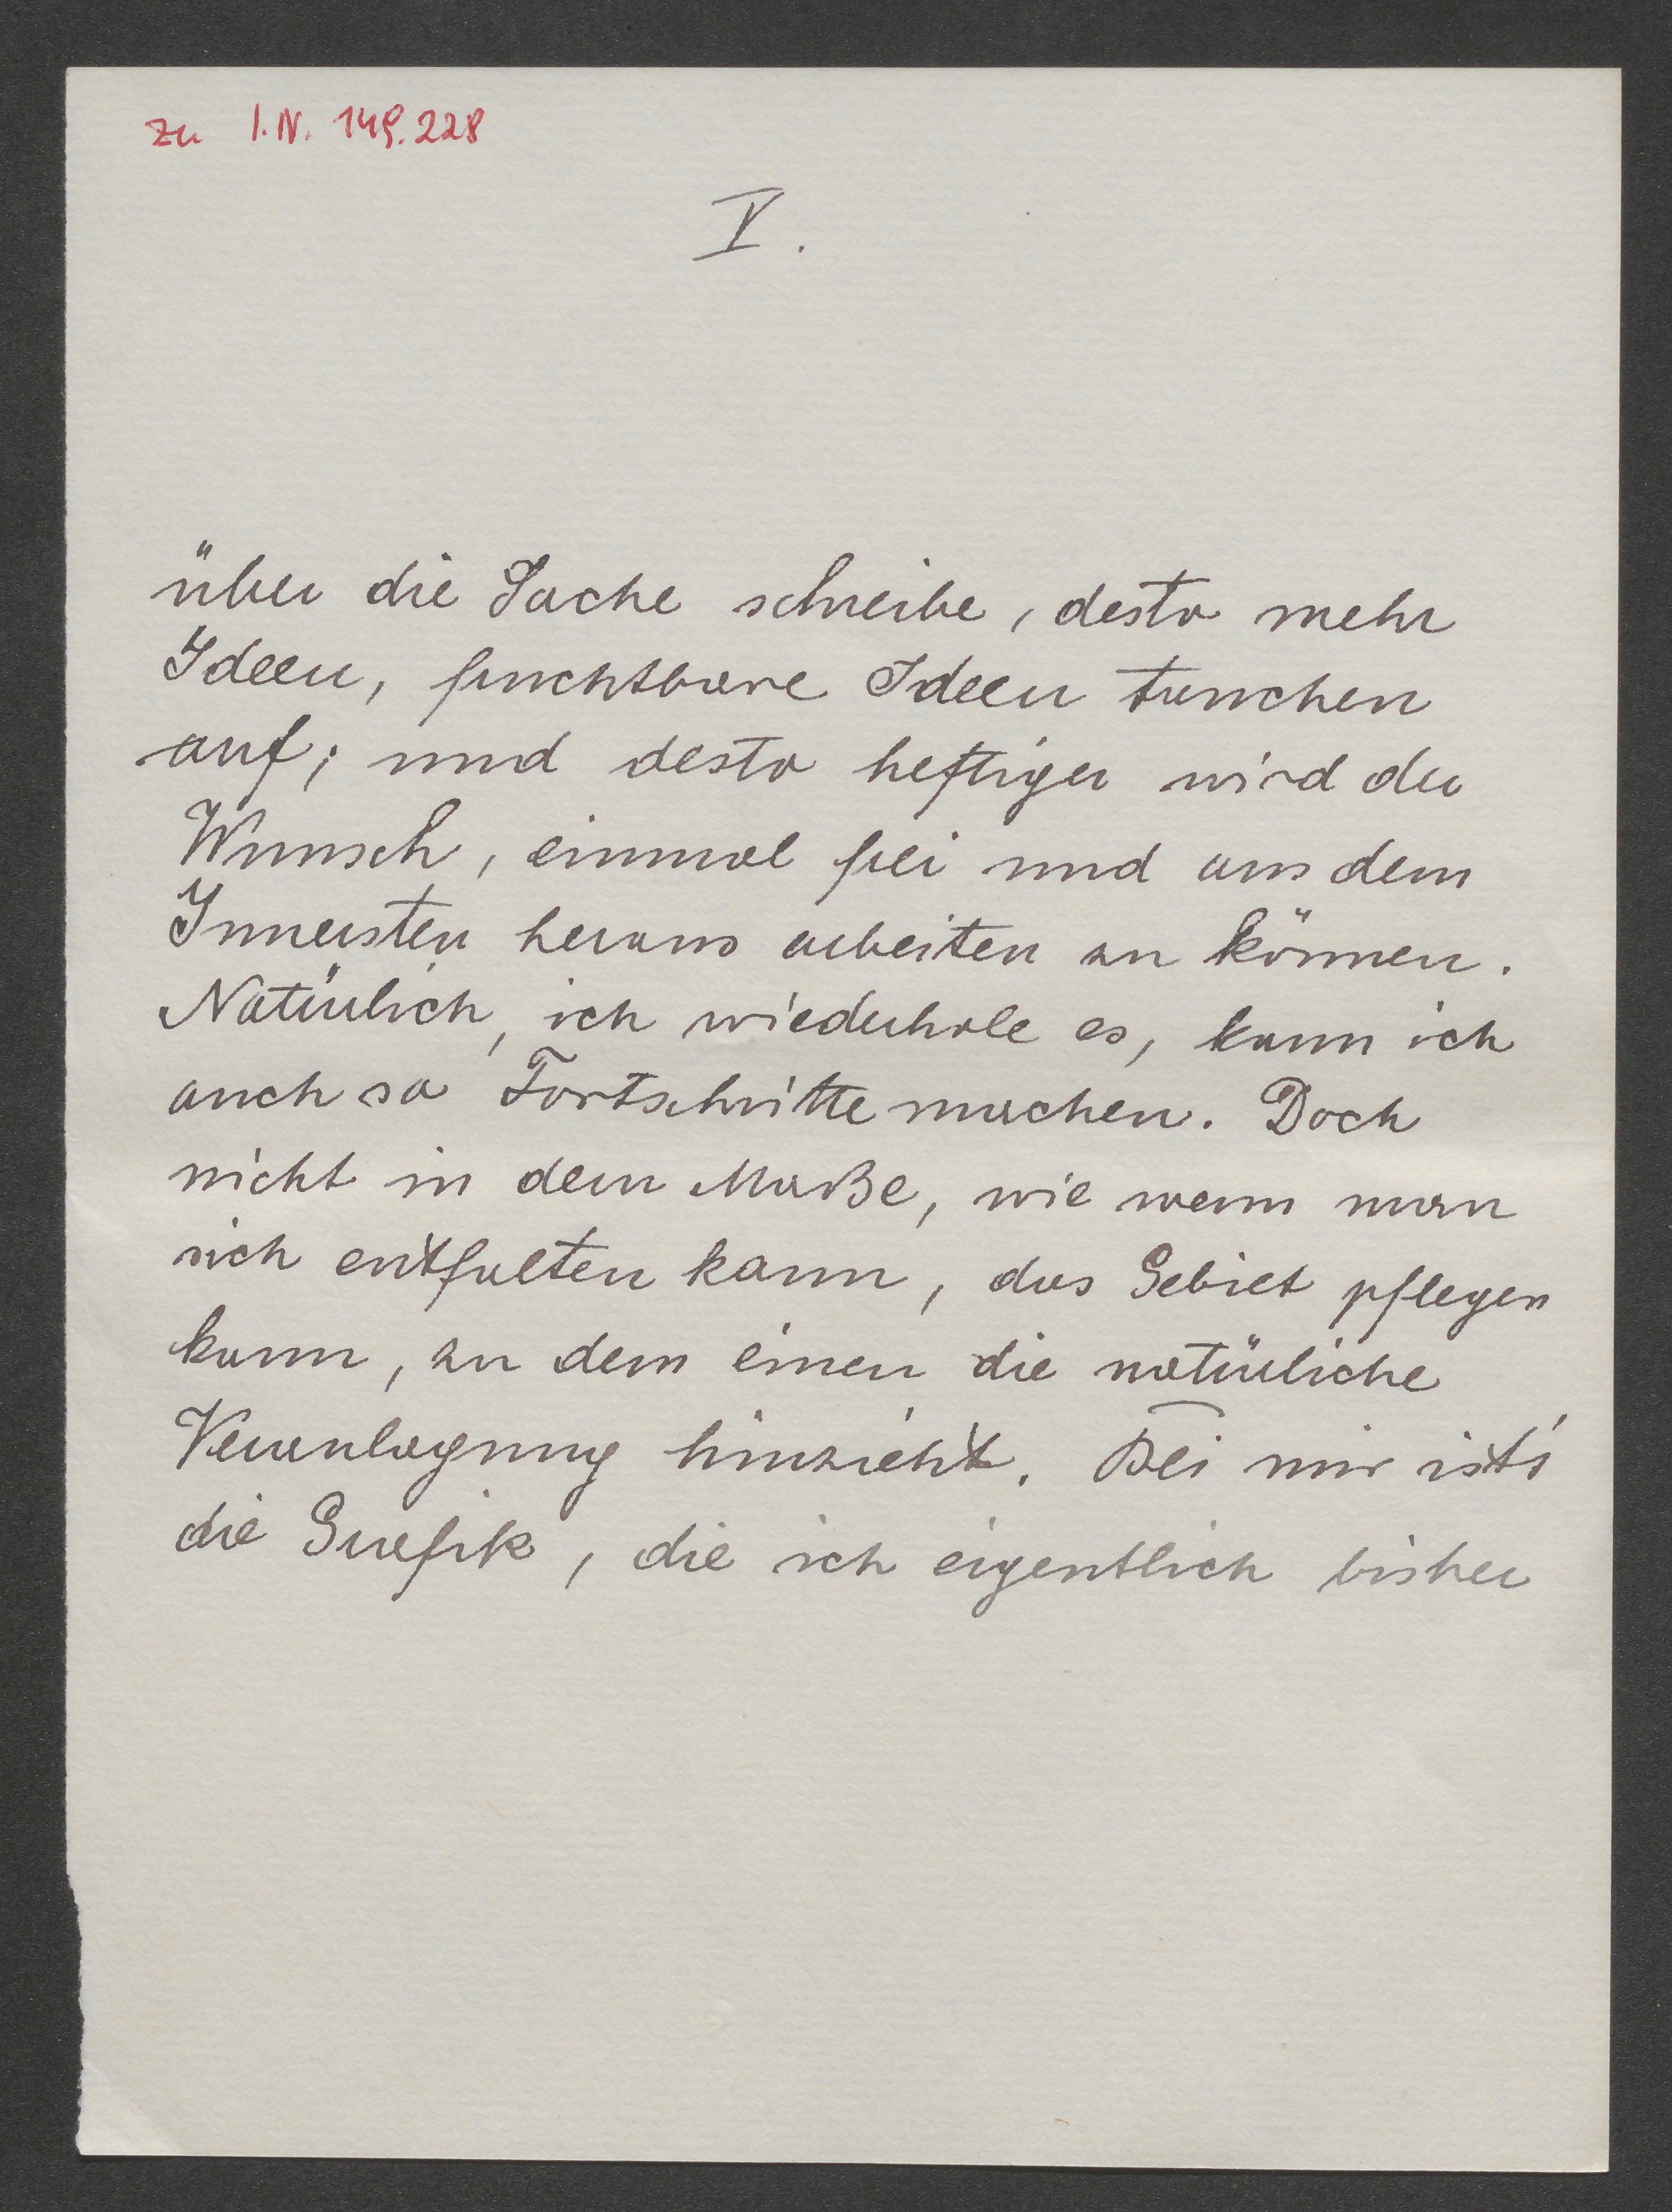 zu I.N. 149.228
V.
über die Sache schreibe, desto mehr
Ideen, fruchtbare Ideen tauchen
auf; und desto heftiger wird der
Wunsch, einmal frei und aus dem
Innersten heraus arbeiten zu können.
Natürlich, ich wiederhole es, kann ich
auch so Fortschritte machen. Doch
nicht in dem Maße, wie wenn man
sich entfalten kann, das Gebiet pflegen
kann, zu dem einen die natürliche
Veranlagung hinzieht. Bei mir ist's
die Grafik, die ich eigentlich bisher